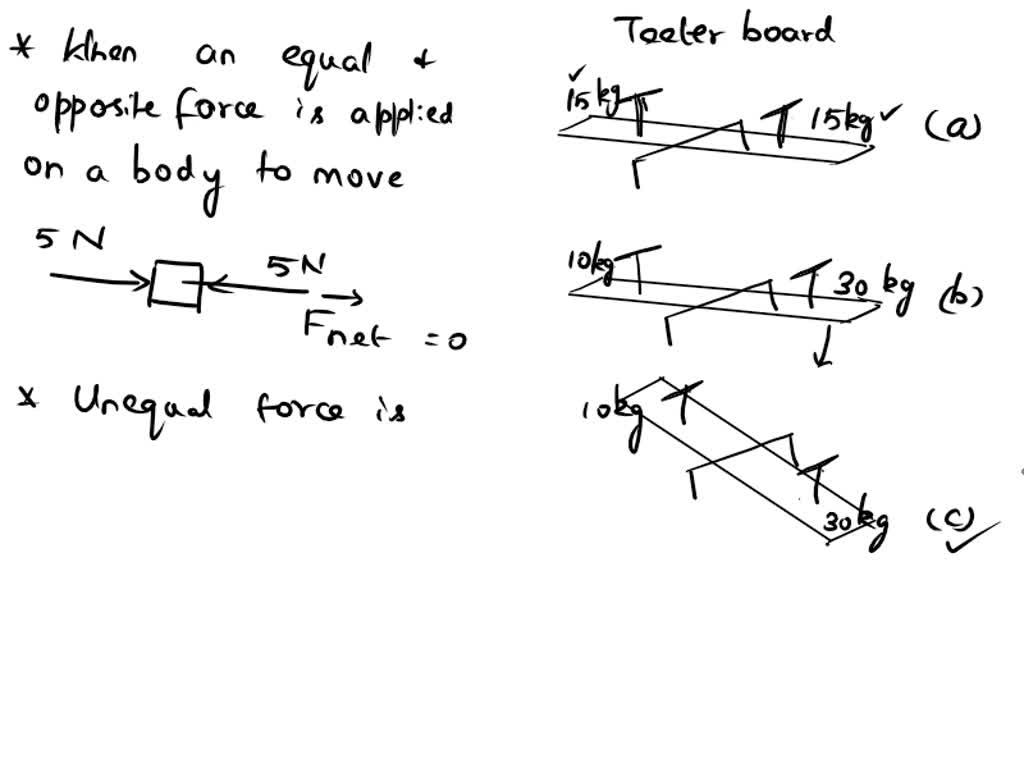 * When an equal &
opposite force is applied
on a body to move
5 N
5N
Fnet = 0
* Unequal force is
Teeter board
15kg
15kg
(a)
10kg
30 kg
(b)
10kg
30kg
(c)